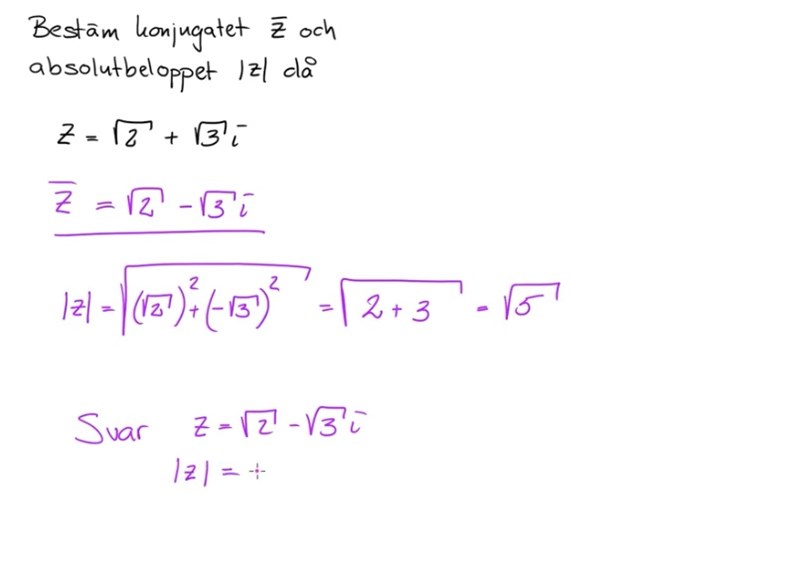 Bestäm konjugatet z̅ och
absolutbeloppet |z| då
z = √2 + √3 i
z̅ = √2 - √3 i
|z| = √((√2)² + (-√3)²) = √(2 + 3) = √5
Svar z = √2 - √3 i
|z| = +